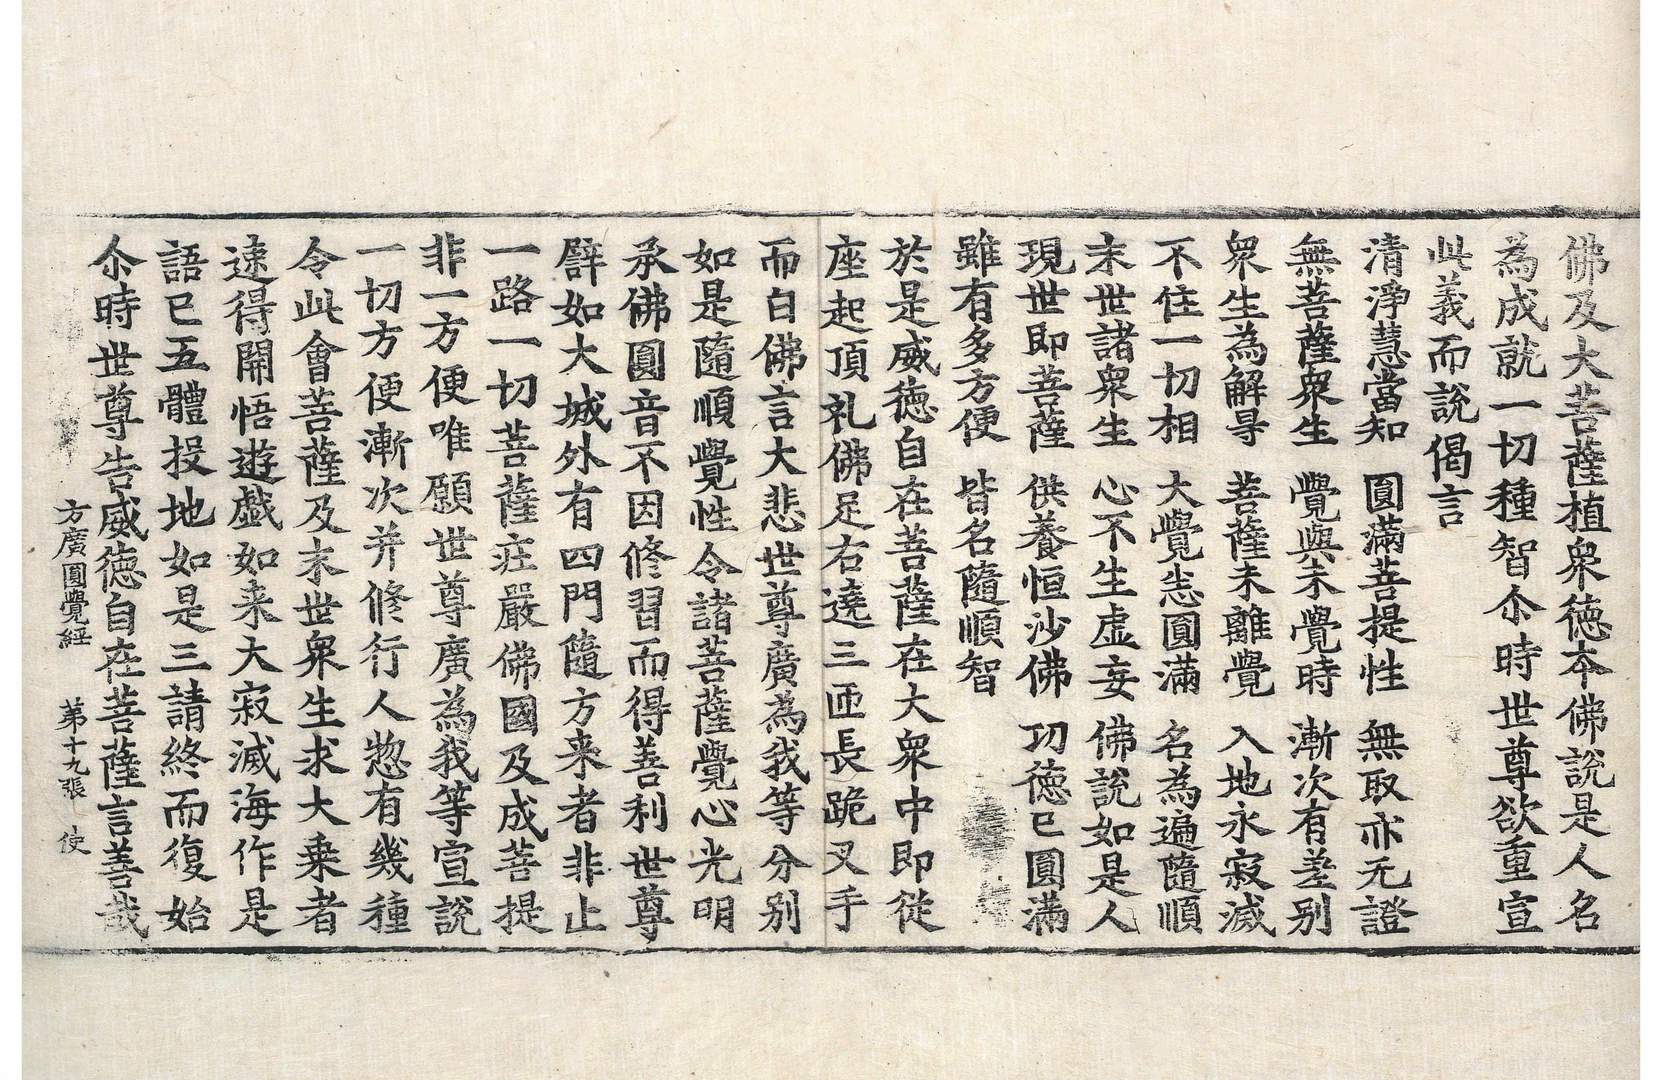 佛及大菩薩植衆德本佛說是人名
為成就一切種智尒時世尊欲重宣
此義而說偈言
清淨慧當知 圓滿菩提性 無取亦无證
無菩薩衆生 覺與未覺時 漸次有差别
衆生為解㝵 菩薩未離覺 入地永寂滅
不住一切相 大覺悉圓滿 名為遍隨順
末世諸衆生 心不生虛妄 佛說如是人
現世即菩薩 供養恒沙佛 功德已圓滿
雖有多方便 皆名隨順智
於是威德自在菩薩在大衆中即從
座起頂礼佛足右遶三匝長跪叉手
而白佛言大悲世尊廣為我等分别
如是隨順覺性令諸菩薩覺心光明
承佛圓音不因修習而得善利世尊
譬如大城外有四門隨方来者非止
一路一切菩薩莊嚴佛國及成菩提
非一方便唯願世尊廣為我等宣說
一切方便漸次并修行人惣有幾種
令此會菩薩及末世衆生求大乗者
速得開悟遊戲如来大寂滅海作是
語已五體投地如是三請終而復始
尒時世尊告威德自在菩薩言善哉
方廣圓覺經 第十九張 使